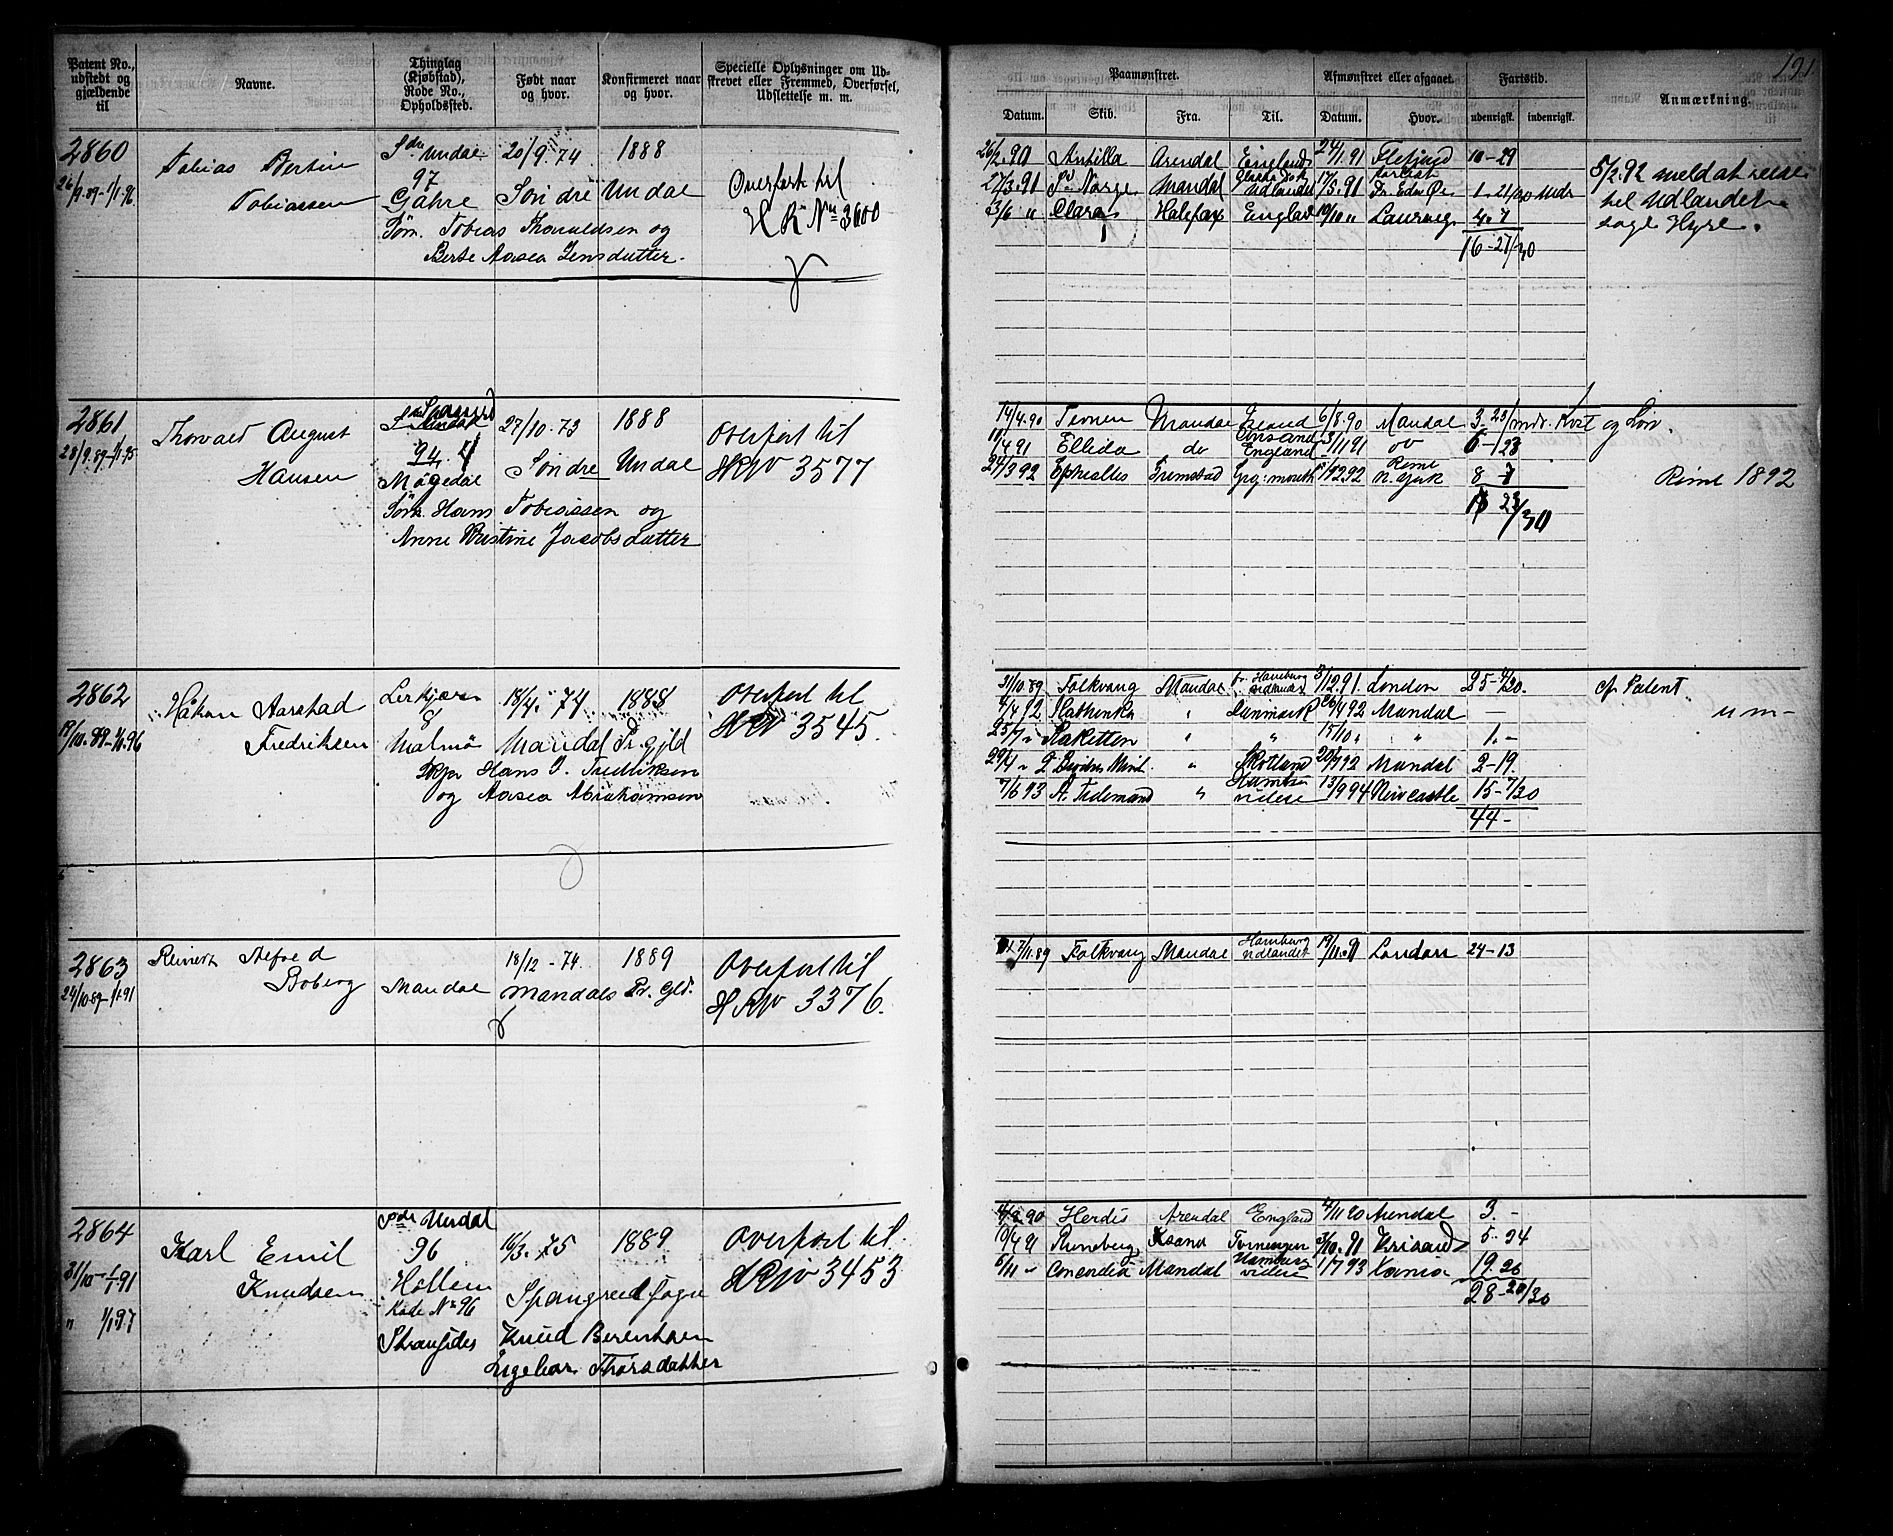 191
Patent No., udstedt og gjældende til
Navne.
Thinglag (Kjøbstad), Rode No., Opholdssted.
Født naar og hvor.
Konfirmeret naar og hvor.
Specielle Oplysninger om Udskrevet eller Fremmed, Overførsel, Udslettelse m. m.
Paamønstret.
Afmønstret eller afgaaet.
Fartstid.
Anmærkning.
Datum. Skib. Fra. Til. Datum. Hvor. udenrigsk. indenrigsk.
2860
26/9.89-1/1.96
Tobias Bertin
Tobiassen
Sdre Undal
97
Gahre
20/9.74
Söndre
1888
Undal
Overført til
HR No 3600
Søn. Tobias Thorvaldsen og
Berte Aasea Jensdatter.
26/2.90 Antilla Arendal England 24/1.91 10-29
27/3.91 Norge Mandal Udlandet 17/5.91 1-21/30 Mdr
3/6 " Clara Halefax Englad 10/10 " Laurvig 4.7
16-27/30
5/2.92 meldt at reise
til Udlandet
søge Hyre.
2861
28/9.89-1/1.95
Thorvald August
Hansen
94
Møgedal
27/10.73
Söndre
1888
Undal
Overført til
HRN 3577
Søn. Hans Tobiassen og
Anne Kristine Jacobsdatter
14/4.90 Mandal 6/8.90 Mandal 3.23/ mdr. Kost og Lön.
Ellida do England 3/11 91 do 6-23
24/3 92 Ephialtes Grimstad 92 N. York 8 7
23/30
Römt 1892
2862
19/10.89-1/1.96
Håkon Aarstad
Fredriksen
Lerkjær
8
Malmö
18/4.74
Mandal
1888
Pr.gjld
Overført til
HRN 3545.
Skpr Hans J. Fredriksen
og Aasea Abrahamsen
31/10.89 Folkvang Mandal Hamburg Udlandet 3/12.91. London 25-4/30.
4/4 92 Kathinka " Danmark 26/4 92 Mandal —
25/7 " Raketten " " 15/10 " " 1.-
Skotland Mandal 2-19.
7/6 93 A. Tidemand " videre 13/9 94 Newcastle 15-7/30
44-
Patent
um-
2863
24/10.89-1/1.91
Reinert Alfred
Boberg
Mandal
18/12-74
Mandals
1889
Pr. Gld.
Overført til
HRN 3376.
7/11.89 Folkvang Mandal Hamburg Udlandet 19/11.91 London 24-13
2864
31/10-1/1.91
" 1/1.97
Karl Emil
Knudsen
Sdr Undal
96
Hollem
Rode No 96
Stransides
16/3.75
1889
Spangreid Sogn
Overført til
HRN 3453
Knud Berentsen
Ingebor Thorsdatter
Herdis Arendal England 4/11 90 Arendal 3.-
10/4 91 Runeberg Ksand 3/10.91 Krisand 5-24
6/11 " Concordia Mandal Hamburg videre 1/7 93 Xania 19.26
28-20/30